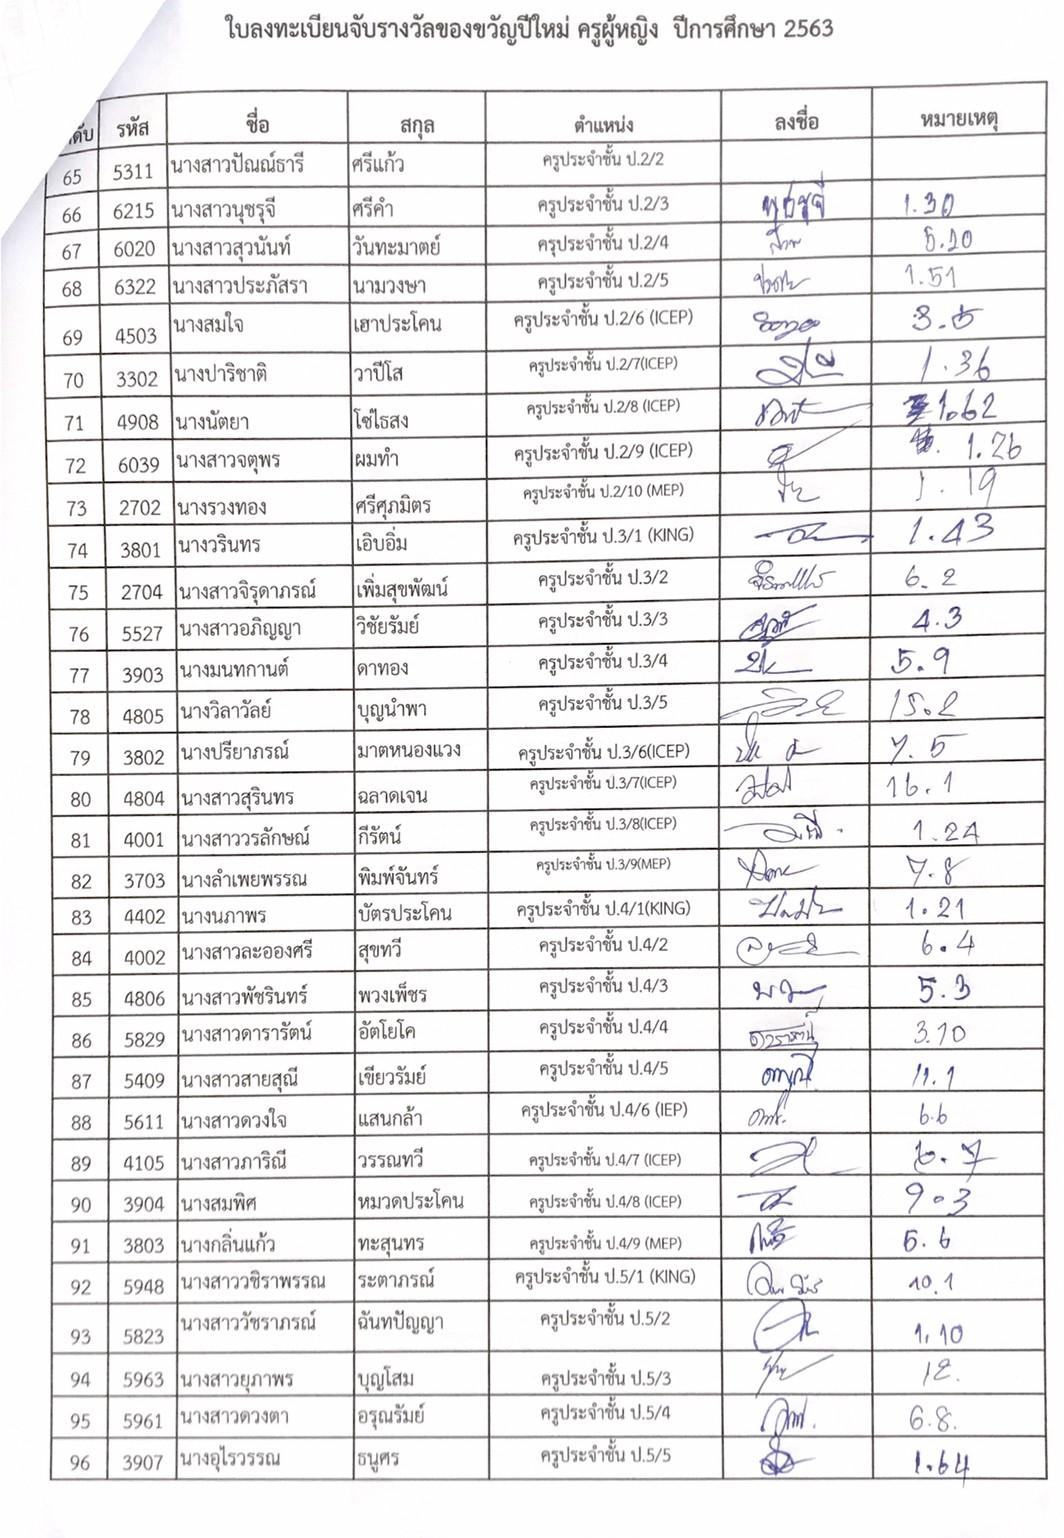 ใบลงทะเบียนจับรางวัลของขวัญปีใหม่ ครูผู้หญิง ปีการศึกษา 2563
รหัส ชื่อ สกุล ตำแหน่ง ลงชื่อ หมายเหตุ
65 5311 นางสาวปัณณ์ธารี ศรีแก้ว ครูประจำชั้น ป.2/2
66 6215 นางสาวนุชรุจี ศรีคำ ครูประจำชั้น ป.2/3 นุชรุจี 1.30
67 6020 นางสาวสุวนันท์ วันทะมาตย์ ครูประจำชั้น ป.2/4 5.10
68 6322 นางสาวประภัสรา นามวงษา ครูประจำชั้น ป.2/5 1.51
69 4503 นางสมใจ เฮาประโคน ครูประจำชั้น ป.2/6 (ICEP) 3.5
70 3302 นางปาริชาติ วาปีโส ครูประจำชั้น ป.2/7(ICEP) 1.36
71 4908 นางนัตยา โซ่ไธสง ครูประจำชั้น ป.2/8 (ICEP) 1.62
72 6039 นางสาวจตุพร ผมทำ ครูประจำชั้น ป.2/9 (ICEP) 1.26
73 2702 นางรวงทอง ศรีศุภมิตร ครูประจำชั้น ป.2/10 (MEP) 1.19
74 3801 นางวรินทร เอิบอิ่ม ครูประจำชั้น ป.3/1 (KING) 1.43
75 2704 นางสาวจิรุดาภรณ์ เพิ่มสุขพัฒน์ ครูประจำชั้น ป.3/2 6.2
76 5527 นางสาวอภิญญา วิชัยรัมย์ ครูประจำชั้น ป.3/3 4.3
77 3903 นางมนทกานต์ ดาทอง ครูประจำชั้น ป.3/4 5.9
78 4805 นางวิลาวัลย์ บุญนำพา ครูประจำชั้น ป.3/5 15.2
79 3802 นางปรียาภรณ์ มาตหนองแวง ครูประจำชั้น ป.3/6(ICEP) 7.5
80 4804 นางสาวสุรินทร ฉลาดเจน ครูประจำชั้น ป.3/7(ICEP) 16.1
81 4001 นางสาววรลักษณ์ กีรัตน์ ครูประจำชั้น ป.3/8(ICEP) 1.24
82 3703 นางลำเพยพรรณ พิมพ์จันทร์ ครูประจำชั้น ป.3/9(MEP) 7.8
83 4402 นางนภาพร บัตรประโคน ครูประจำชั้น ป.4/1(KING) 1.21
84 4002 นางสาวละอองศรี สุขทวี ครูประจำชั้น ป.4/2 6.4
85 4806 นางสาวพัชรินทร์ พวงเพ็ชร ครูประจำชั้น ป.4/3 5.3
86 5829 นางสาวดารารัตน์ อัตโยโค ครูประจำชั้น ป.4/4 ดารารัตน์ 3.10
87 5409 นางสาวสายสุณี เขียวรัมย์ ครูประจำชั้น ป.4/5 11.1
88 5611 นางสาวดวงใจ แสนกล้า ครูประจำชั้น ป.4/6 (IEP) 6.6
89 4105 นางสาวภาริณี วรรณทวี ครูประจำชั้น ป.4/7 (ICEP) 6.7
90 3904 นางสมพิศ หมวดประโคน ครูประจำชั้น ป.4/8 (ICEP) 9.3
91 3803 นางกลิ่นแก้ว ทะสุนทร ครูประจำชั้น ป.4/9 (MEP) 5.6
92 5948 นางสาววชิราพรรณ ระตาภรณ์ ครูประจำชั้น ป.5/1 (KING) 10.1
93 5823 นางสาววัชราภรณ์ ฉันทปัญญา ครูประจำชั้น ป.5/2 1.10
94 5963 นางสาวยุภาพร บุญโสม ครูประจำชั้น ป.5/3 12.
95 5961 นางสาวดวงตา อรุณรัมย์ ครูประจำชั้น ป.5/4 6.8.
96 3907 นางอุไรวรรณ ธนูศร ครูประจำชั้น ป.5/5 1.64